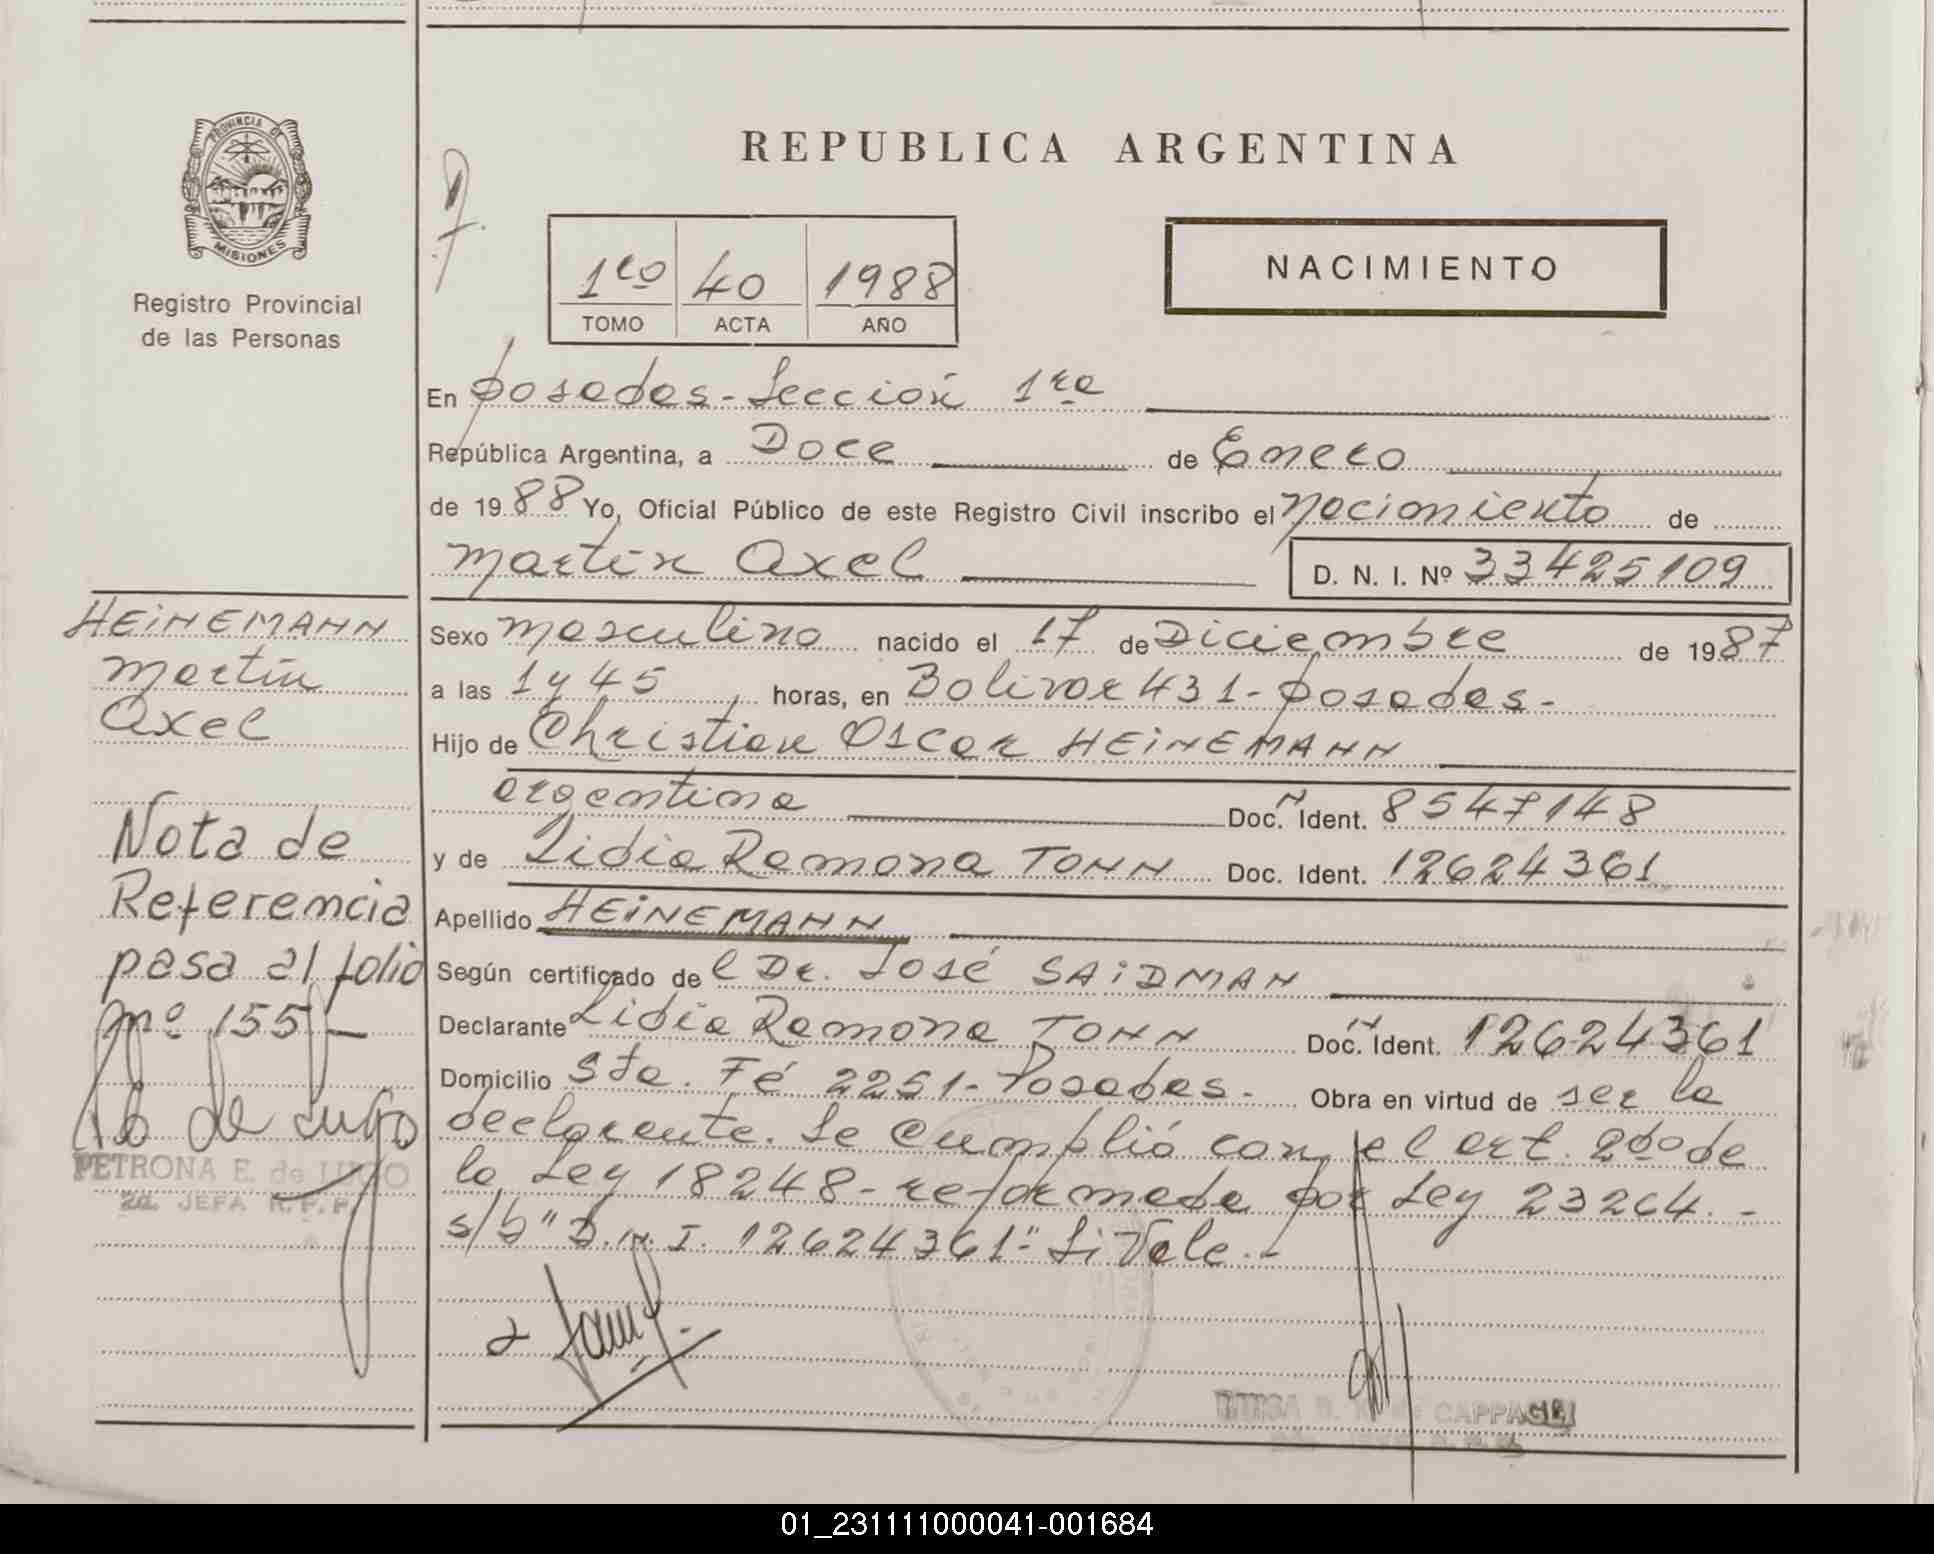 PROVINCIA DE
MISIONES
Registro Provincial
de las Personas
REPUBLICA ARGENTINA
1ro 40 1988
TOMO ACTA AÑO
NACIMIENTO
En Posadas - Sección 1ra
República Argentina, a Doce de Enero
de 1988 Yo, Oficial Público de este Registro Civil inscribo el nacimiento de
Martín Axel D. N. I. Nº 33425109
Sexo masculino nacido el 17 de Diciembre de 1987
a las 1 y 45 horas, en Bolivar 431 - Posadas -
Hijo de Christian Oscar HEiNEMANN
argentino Doc. N Ident. 8547148
y de Lidia Ramona TONN Doc. Ident. 12624361
Apellido HEiNEMANN
Según certificado del Dr. José SAiDMAN
Declarante Lidia Ramona TONN Doc. N Ident. 12624361
Domicilio Sta. Fé 2251 - Posadas - Obra en virtud de ser la
declarante. Se cumplió con el art. 2do de
la Ley 18248 - reformada por Ley 23264. -
s/b "D.N.I. 12624361" Si Vale. -
HEiNEMANN
Martín
Axel
Nota de
Referencia
pasa al folio
nº 155 -
PETRONA E. de LUGO
2a. JEFA R.P.P.
CAPPAGLI
01_231111000041-001684